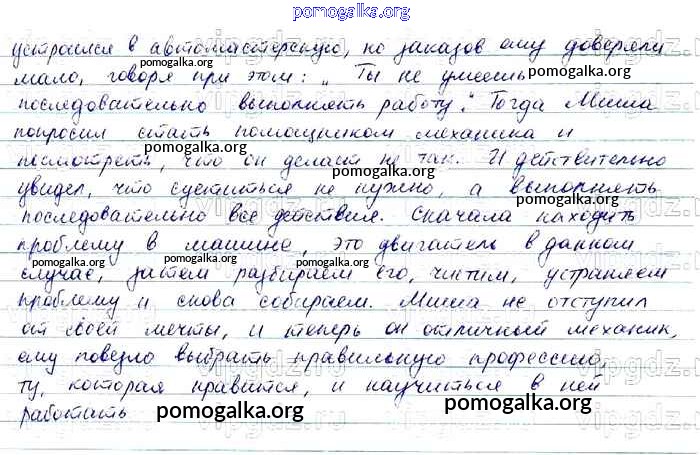 pomogalka.org
устроился в автомастерскую, но заказов ему доверяли
мало, говоря при этом: „Ты не умеешь
pomogalka.org pomogalka.org
последовательно выполнять работу." Тогда Миша
попросил стать помощником механика и
pomogalka.org
посмотреть, что он делает не так. И действительно
увидел, что суетиться не нужно, а выполнять
pomogalka.org pomogalka.org
последовательно все действия. Сначала находить
проблему в машине, это двигатель в данном
pomogalka.org
случае, затем разбираем его, чистим, устраняем
проблему и снова собираем. Миша не отступил
от своей мечты, и теперь он отличный механик,
ему повезло выбрать правильную профессию,
ту, которая нравится, и научиться в ней
работать
pomogalka.org pomogalka.org
pomogalka.org